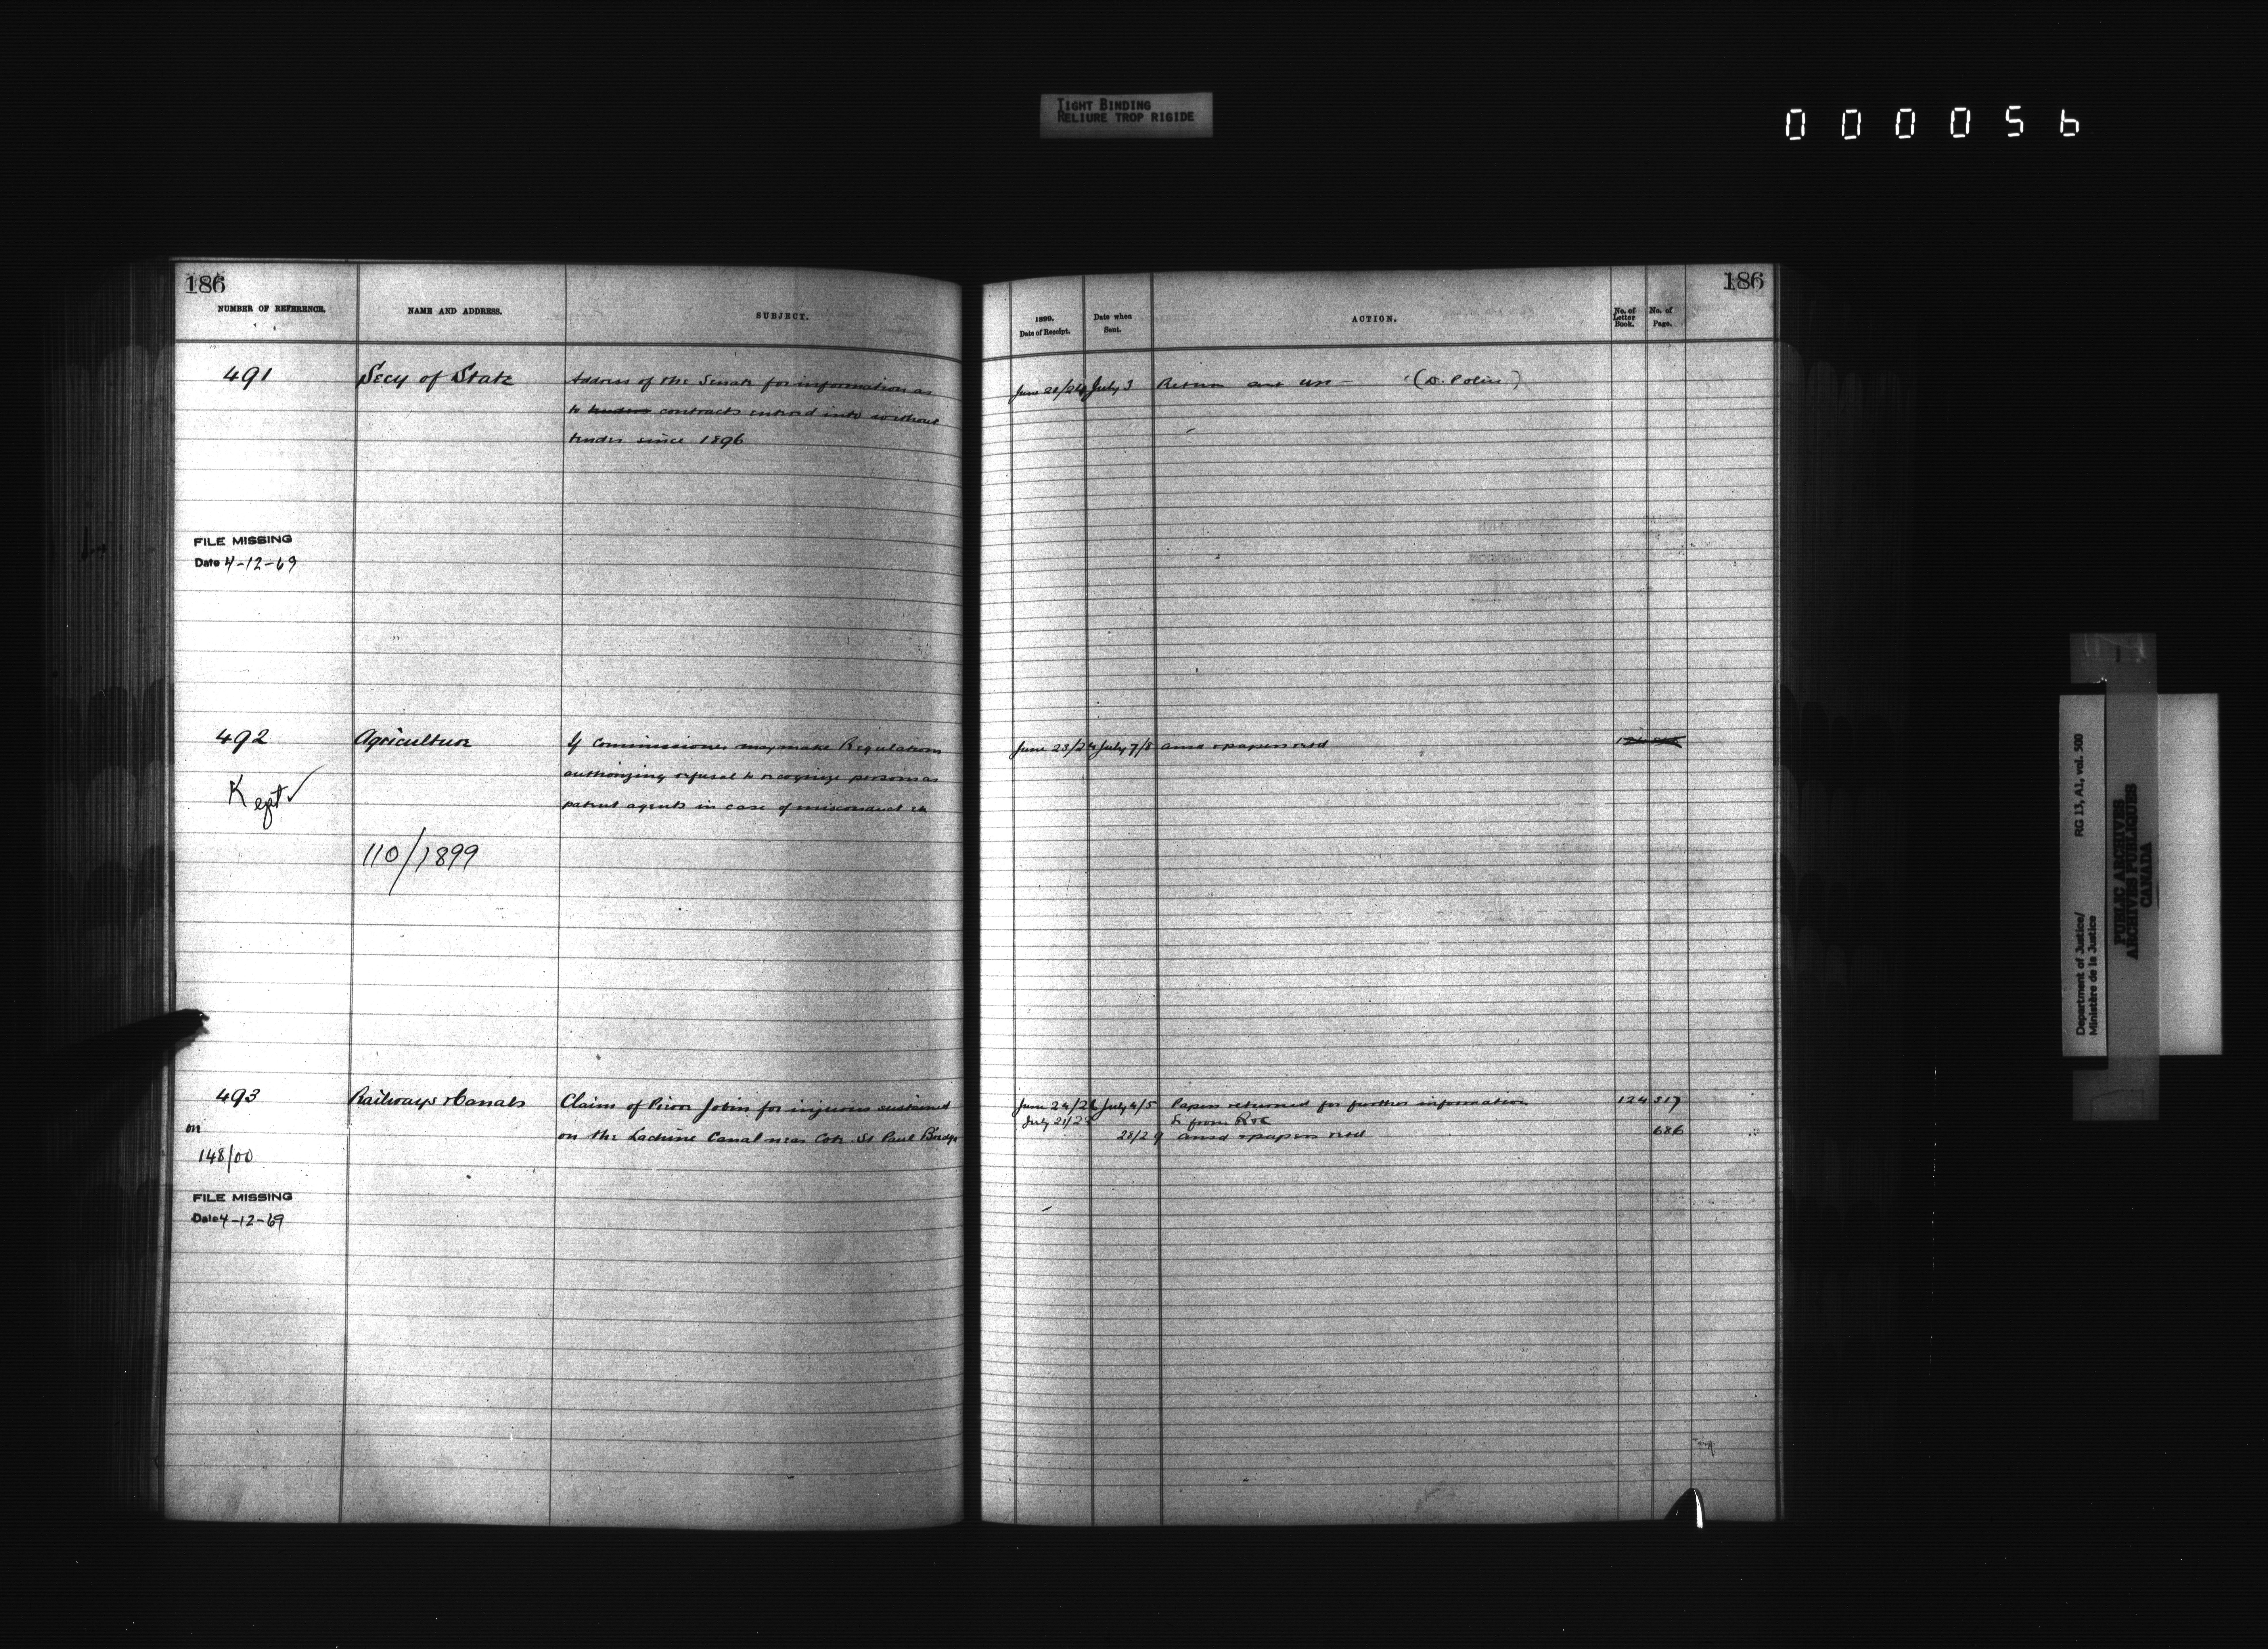 TIGHT BINDING
RELIURE TROP RIGIDE
000056
186
NUMBER OF REFERENCE.
NAME AND ADDRESS.
SUBJECT.
491
Secy of State
Address of the Senate for information as
to tenders contracts entered into without
tender since 1896
FILE MISSING
Date 4-12-69
492
Agriculture
If Commissioner may make Regulations
authorizing refusal to recognize persons as
patent agents in case of misconduct &c
Kept ✓
110/1899
493
Railways & Canals
Claim of Pierre Jobin for injuries sustained
on the Lachine Canal near Cote St Paul Bridge
on
148/00
FILE MISSING
Date 4-12-69
186
1899.
Date of Receipt.
Date when
Sent.
ACTION.
No. of
Letter
Book.
No. of
Page.
June 20/24 July 3 Return (D. Police)
June 23/24 July 7/8 ansd & papers retd
June 24/26 July 4/5 Papers returned for further information 124 517
July 21/22 from R & C
28/29 ansd & papers retd 686
Department of Justice/
Ministère de la Justice
RG 13, A1, vol. 500
PUBLIC ARCHIVES
ARCHIVES PUBLIQUES
CANADA